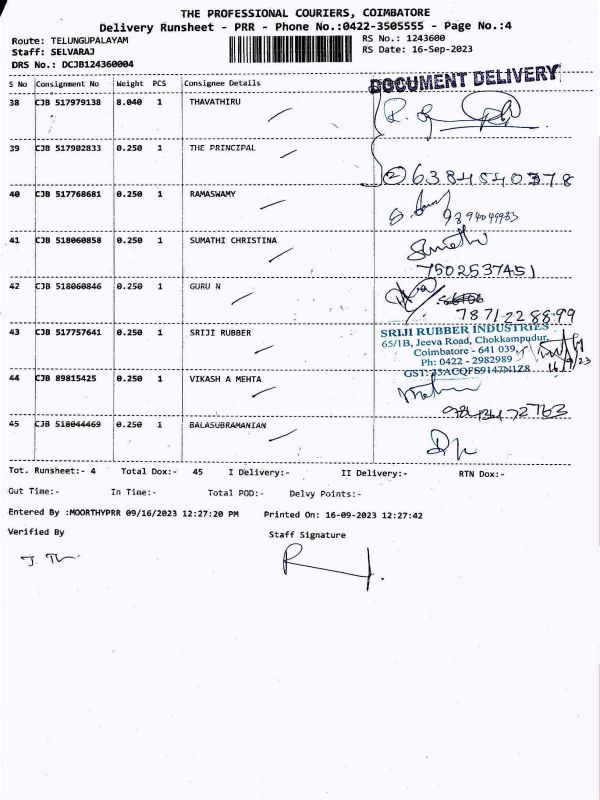 THE PROFESSIONAL COURIERS, COIMBATORE
Delivery Runsheet - PRR - Phone No.:0422-3505555 - Page No.:4
Route: TELUNGUPALAYAM
RS No.: 1243600
Staff: SELVARAJ
RS Date: 16-Sep-2023
DRS No.: DCJB124360004
S No Consignment No Weight PCS Consignee Details
DOCUMENT DELIVERY
38 CJB 517979138 8.040 1 THAVATHIRU
39 CJB 517902833 0.250 1 THE PRINCIPAL
② 6384540378
40 CJB 517768681 0.250 1 RAMASWAMY
41 CJB 518060858 0.250 1 SUMATHI CHRISTINA
Sumathi
7502537451
42 CJB 518060846 0.250 1 GURU N
7871228899
43 CJB 517757641 0.250 1 SRIJI RUBBER
SRIJI RUBBER INDUSTRIES
65/1B, Jeeva Road, Chokkampudur,
Coimbatore - 641 039,
Ph: 0422 - 2982989
16/9/23
44 CJB 89815425 0.250 1 VIKASH A MEHTA
45 CJB 518044469 0.250 1 BALASUBRAMANIAN
Tot. Runsheet:- 4 Total Dox:- 45 I Delivery:- II Delivery:- RTN Dox:-
Out Time:- In Time:- Total POD:- Delvy Points:-
Entered By :MOORTHYPRR 09/16/2023 12:27:20 PM Printed On: 16-09-2023 12:27:42
Verified By
Staff Signature